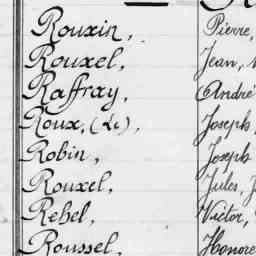 Rouxin, Pierre,
Rouxel, Jean,
Raffray, André
Roux, (Le), Joseph
Robin, Joseph
Rouxel, Jules,
Rebel, Victor,
Roussel, Honore